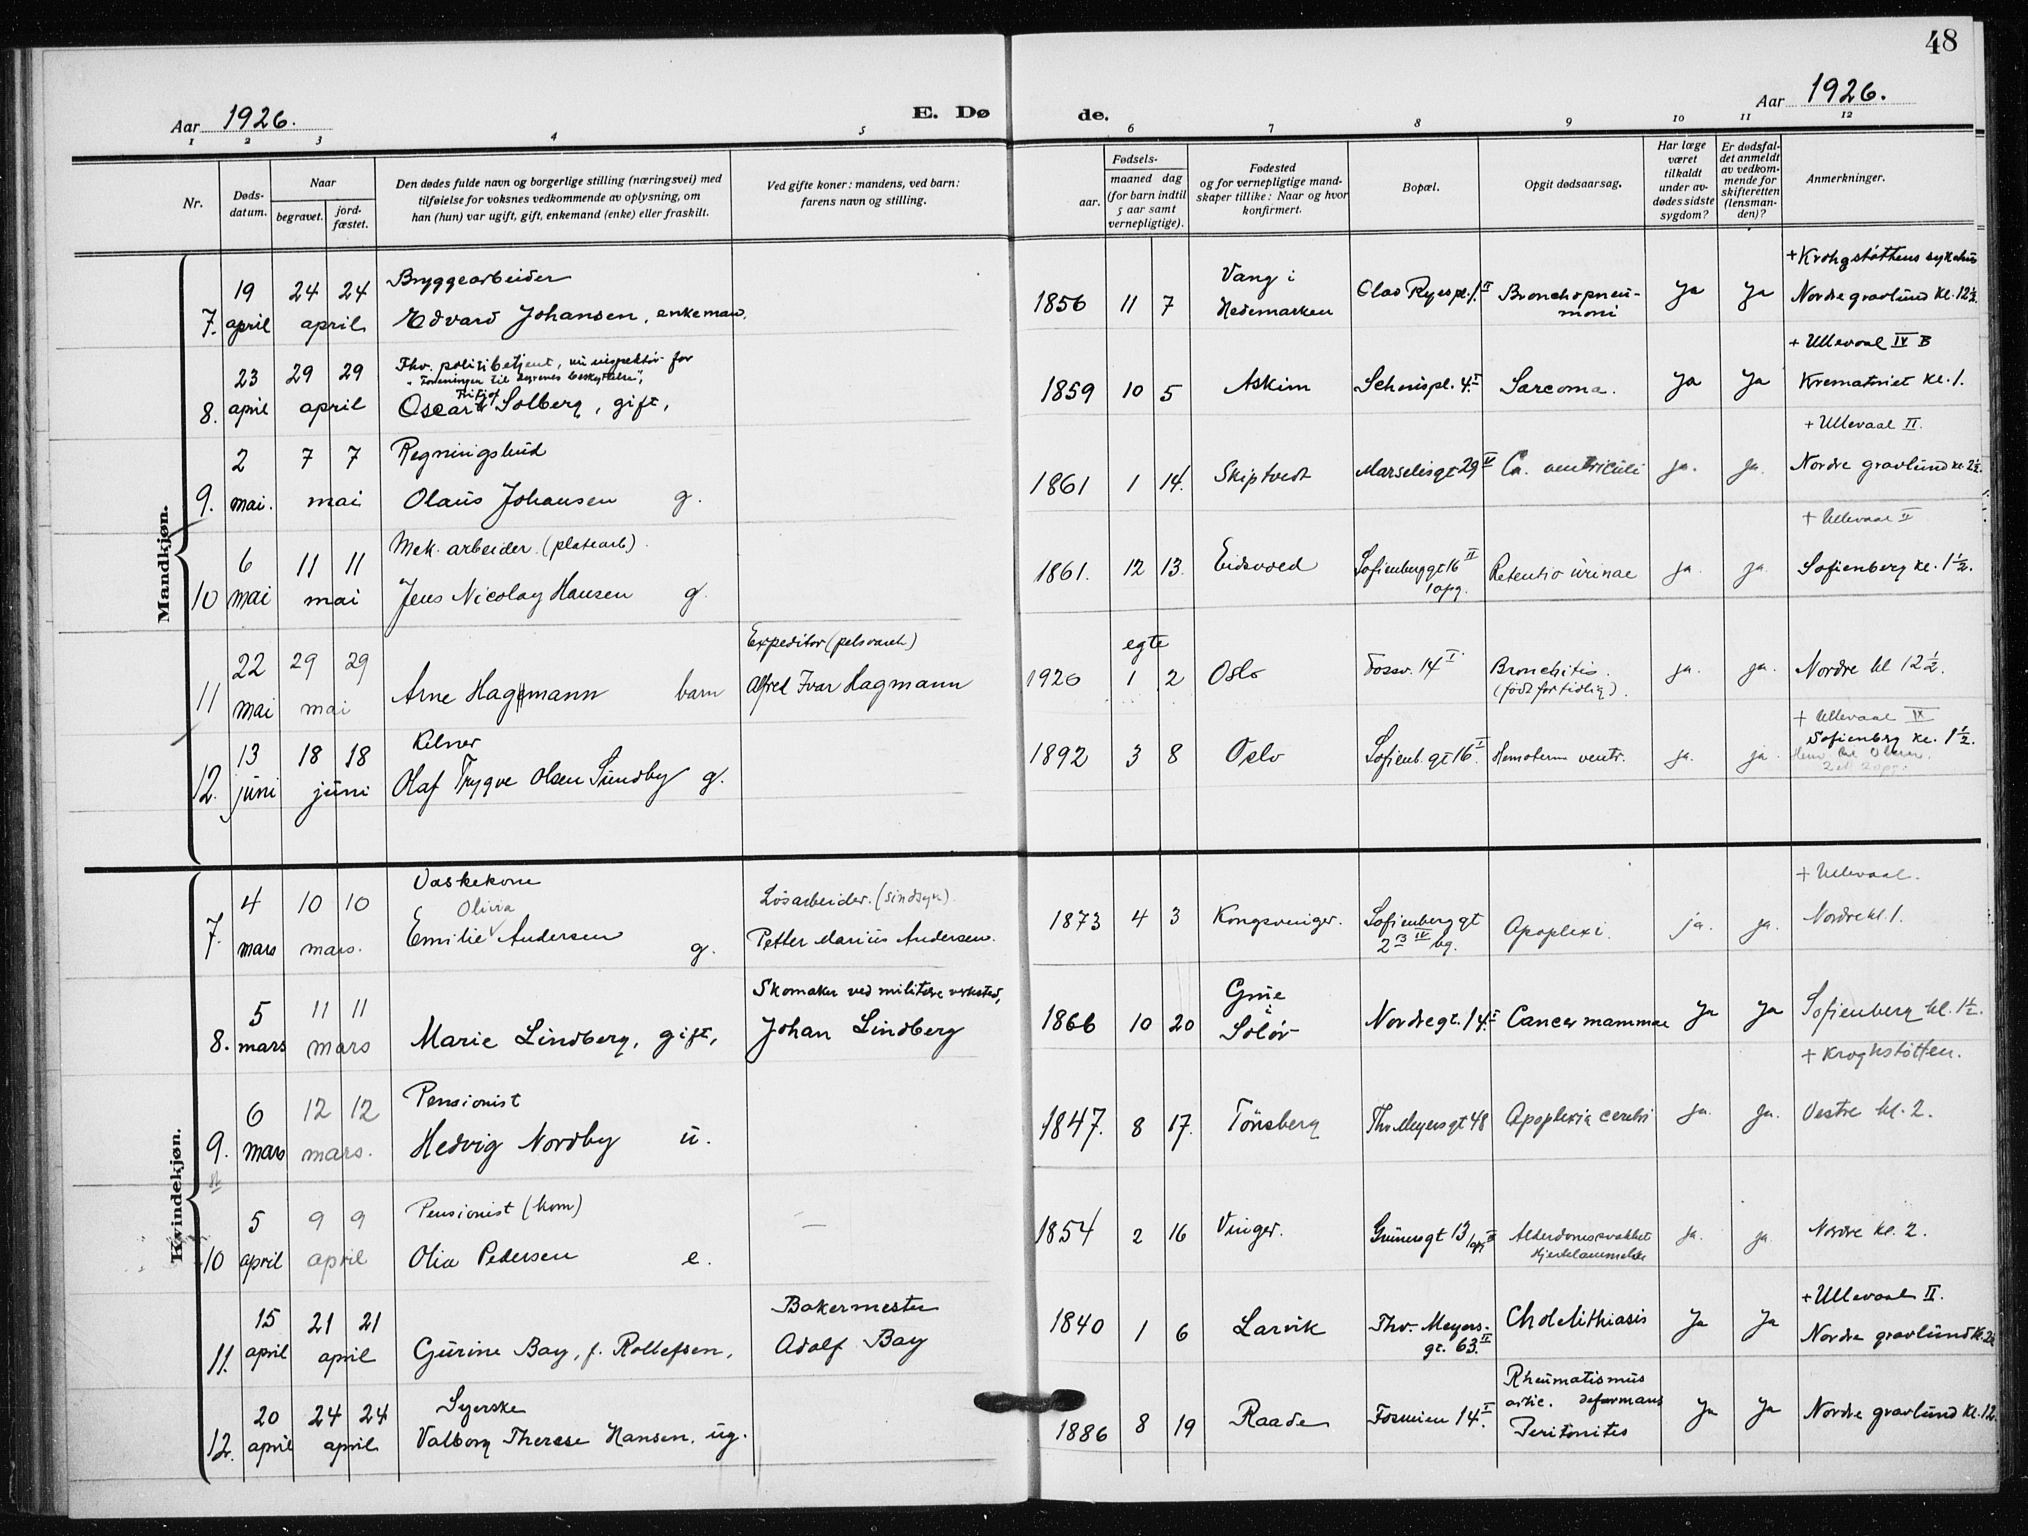 48
Aar 1926. E. Dø
de. Aar 1926.
1 2 3 4 5 6 7 8 9 10 11 12
Nr.
Døds-
datum.
Naar
begravet.
jord-
fæstet.
Den dødes fulde navn og borgerlige stilling (næringsvei) med
tilføielse for voksnes vedkommende av oplysning, om
han (hun) var ugift, gift, enkemand (enke) eller fraskilt.
Ved gifte koner: mandens, ved barn:
farens navn og stilling.
Fødsels-
aar.
maaned dag
(for barn indtil
5 aar samt
vernepligtige).
Fødested
og for vernepligtige mand-
skaper tillike: Naar og hvor
konfirmert.
Bopæl.
Opgit dødsaarsag.
Har læge
været
tilkaldt
under av-
dødes sidste
sygdom?
Er dødsfal-
det anmeldt
av vedkom-
mende for
skifteretten
(lensman-
den)?
Anmerkninger.
Mandkjøn.
7. 19 april 24 24 april
Bryggearbeider
Edvard Johansen, enkeman.
1856 11 7
Vang i
Hedemarken
Olav Ryespl. 1. II
Bronchopneu-
moni
Ja Ja
+ Krohgstøttens sykehus
Nordre gravlund kl. 12½.
8. 23 april 29 29 april
Fhv. politibetjent, nu inspektör for
"Foreningen til dyrenes beskyttelse",
Fritjof
Oscar Solberg, gift,
1859 10 5
Askim
Schouspl. 4. I
Sarcoma.
Ja Ja
+ Ullevaal IV B
Krematoriet kl. 1.
9. 2 mai. 7 7 mai
Regningsbud
Olaus Johansen g.
1861 1 14.
Skiptvedt
Marselisgt 29 IV
Ca. ventriculi
ja. ja.
+ Ullevaal II.
Nordre gravlund kl. 2½.
10 6 mai 11 11 mai
Mek. arbeider. (platearb).
Jens Nicolay Hansen g.
1861. 12 13.
Eidsvold
Sofienberggt 16 II
1 opg.
Retentio urinae
ja. ja.
+ Ullevaal II
Sofienberg kl. 1½.
11 22 mai 29 29 mai
Arne Hagmann barn
Expeditør (pelsvareh)
Alfred Ivar Hagmann
egte
1926 1 2
Oslo
Fossv. 14 I.
Bronchitis.
(født for tidlig).
ja. ja.
Nordre kl 12½.
12. 13 juni 18 18 juni
Kelner
Olaf Trygve Olsen Sundby g.
1892 3 8
Oslo
Sofienb. gt 16 I.
ventr.
ja. ja.
+ Ullevaal IX
Sofienberg kl. 1½.
Kvindekjøn.
7. 4 mars 10 10 mars.
Vaskekone
Olivia
Emilie Andersen g.
Løsarbeider. (sindsyk).
Petter Marius Andersen.
1873 4 3
Kongsvinger.
Sofienberggt
2 B IV bg.
Apoplexi.
ja. ja.
+ Ullevaal.
Nordre kl. 1.
8. 5 mars 11 11 mars
Marie Lindberg, gift,
Skomaker ved militære verksted,
Johan Lindberg
1866 10 20
Grue
i
Solør
Nordregt. 14. I
Cancer mammae
Ja Ja
Sofienberg kl. 1½.
9. 6 mars 12 12 mars.
Pensionist
Hedvig Nordby u.
1847. 8 17.
Tönsberg
Thv Meyersgt 48
Apoplexia cerebri
ja. ja.
+ Kroghstøtten.
Vestre kl. 2.
10 5 april 9 9 april
Pensionist (kom)
Olia Pedersen e.
—
1854 2 16
Vinger.
Grünersgt 13
Alderdomssvakhet
Hjertelammelse
ja. ja.
Nordre kl. 2
11. 15 april 21 21 april
Gurine Bay, f. Rollefsen,
Bakermester
Adolf Bay
1840 1 6
Larvik
Thv. Meyers-
gt. 63. II
Cholelithiasis
Ja Ja
+ Ullevaal II.
Nordre gravlund kl. 2½
12. 20 april 24 24 april
Syerske
Valborg Therese Hansen, ug.
1886 8 19
Raade
Fossveien 14. I
Rheumatismus
artic. deformans
Peritonites
Ja Ja
Nordre gravlund kl. 12.